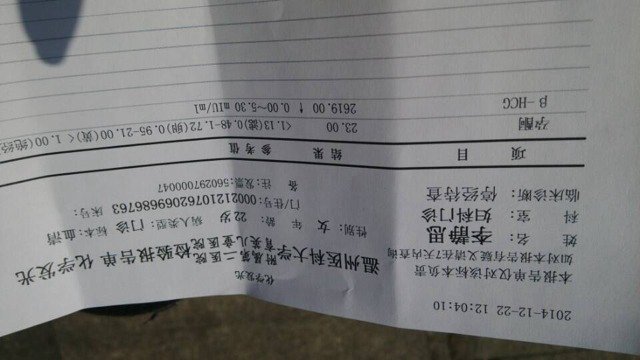 化学发光
温州医科大学附属第二医院育英儿童医院检验报告单 化学发光
姓 名: 李静思 性别: 女 年 龄: 22岁 病人类型: 门诊 标本: 血清
科 室: 妇科门诊 门/住号: 000212107620969686763 床号:
临床诊断: 停经待查 备 注: 发票:560297000047
项 目 结 果 参 考 值
孕酮 23.00 <1.13(滤)0.48-1.72(卵)0.95-21.00(黄)< 1.00(绝经
β-HCG 2619.00 ↑ 0.00~5.30 mIU/ml
2014-12-22 12:04:10
本报告单仅对该标本负责
如对本报告有疑义请在7天内查询